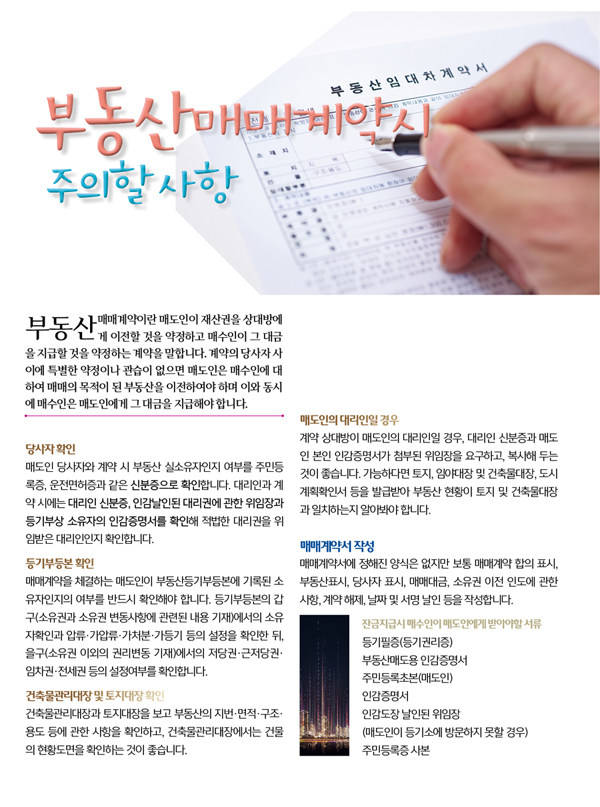 부동산매매계약시
주의할 사항
부동산임대차계약서
부동산 매매계약이란 매도인이 재산권을 상대방에
게 이전할 것을 약정하고 매수인이 그 대금
을 지급할 것을 약정하는 계약을 말합니다. 계약의 당사자 사
이에 특별한 약정이나 관습이 없으면 매도인은 매수인에 대
하여 매매의 목적이 된 부동산을 이전하여야 하며 이와 동시
에 매수인은 매도인에게 그 대금을 지급해야 합니다.
당사자 확인
매도인 당사자와 계약 시 부동산 실소유자인지 여부를 주민등
록증, 운전면허증과 같은 신분증으로 확인합니다. 대리인과 계
약 시에는 대리인 신분증, 인감날인된 대리권에 관한 위임장과
등기부상 소유자의 인감증명서를 확인해 적법한 대리권을 위
임받은 대리인인지 확인합니다.
등기부등본 확인
매매계약을 체결하는 매도인이 부동산등기부등본에 기록된 소
유자인지의 여부를 반드시 확인해야 합니다. 등기부등본의 갑
구(소유권과 소유권 변동사항에 관련된 내용 기재)에서의 소유
자확인과 압류·가압류·가처분·가등기 등의 설정을 확인한 뒤,
을구(소유권 이외의 권리변동 기재)에서의 저당권·근저당권·
임차권·전세권 등의 설정여부를 확인합니다.
건축물관리대장 및 토지대장 확인
건축물관리대장과 토지대장을 보고 부동산의 지번·면적·구조·
용도 등에 관한 사항을 확인하고, 건축물관리대장에서는 건물
의 현황도면을 확인하는 것이 좋습니다.
매도인의 대리인일 경우
계약 상대방이 매도인의 대리인일 경우, 대리인 신분증과 매도
인 본인 인감증명서가 첨부된 위임장을 요구하고, 복사해 두는
것이 좋습니다. 가능하다면 토지, 임야대장 및 건축물대장, 도시
계획확인서 등을 발급받아 부동산 현황이 토지 및 건축물대장
과 일치하는지 알아봐야 합니다.
매매계약서 작성
매매계약서에 정해진 양식은 없지만 보통 매매계약 합의 표시,
부동산표시, 당사자 표시, 매매대금, 소유권 이전 인도에 관한
사항, 계약 해제, 날짜 및 서명 날인 등을 작성합니다.
잔금지급시 매수인이 매도인에게 받아야할 서류
등기필증(등기권리증)
부동산매도용 인감증명서
주민등록초본(매도인)
인감증명서
인감도장 날인된 위임장
(매도인이 등기소에 방문하지 못할 경우)
주민등록증 사본